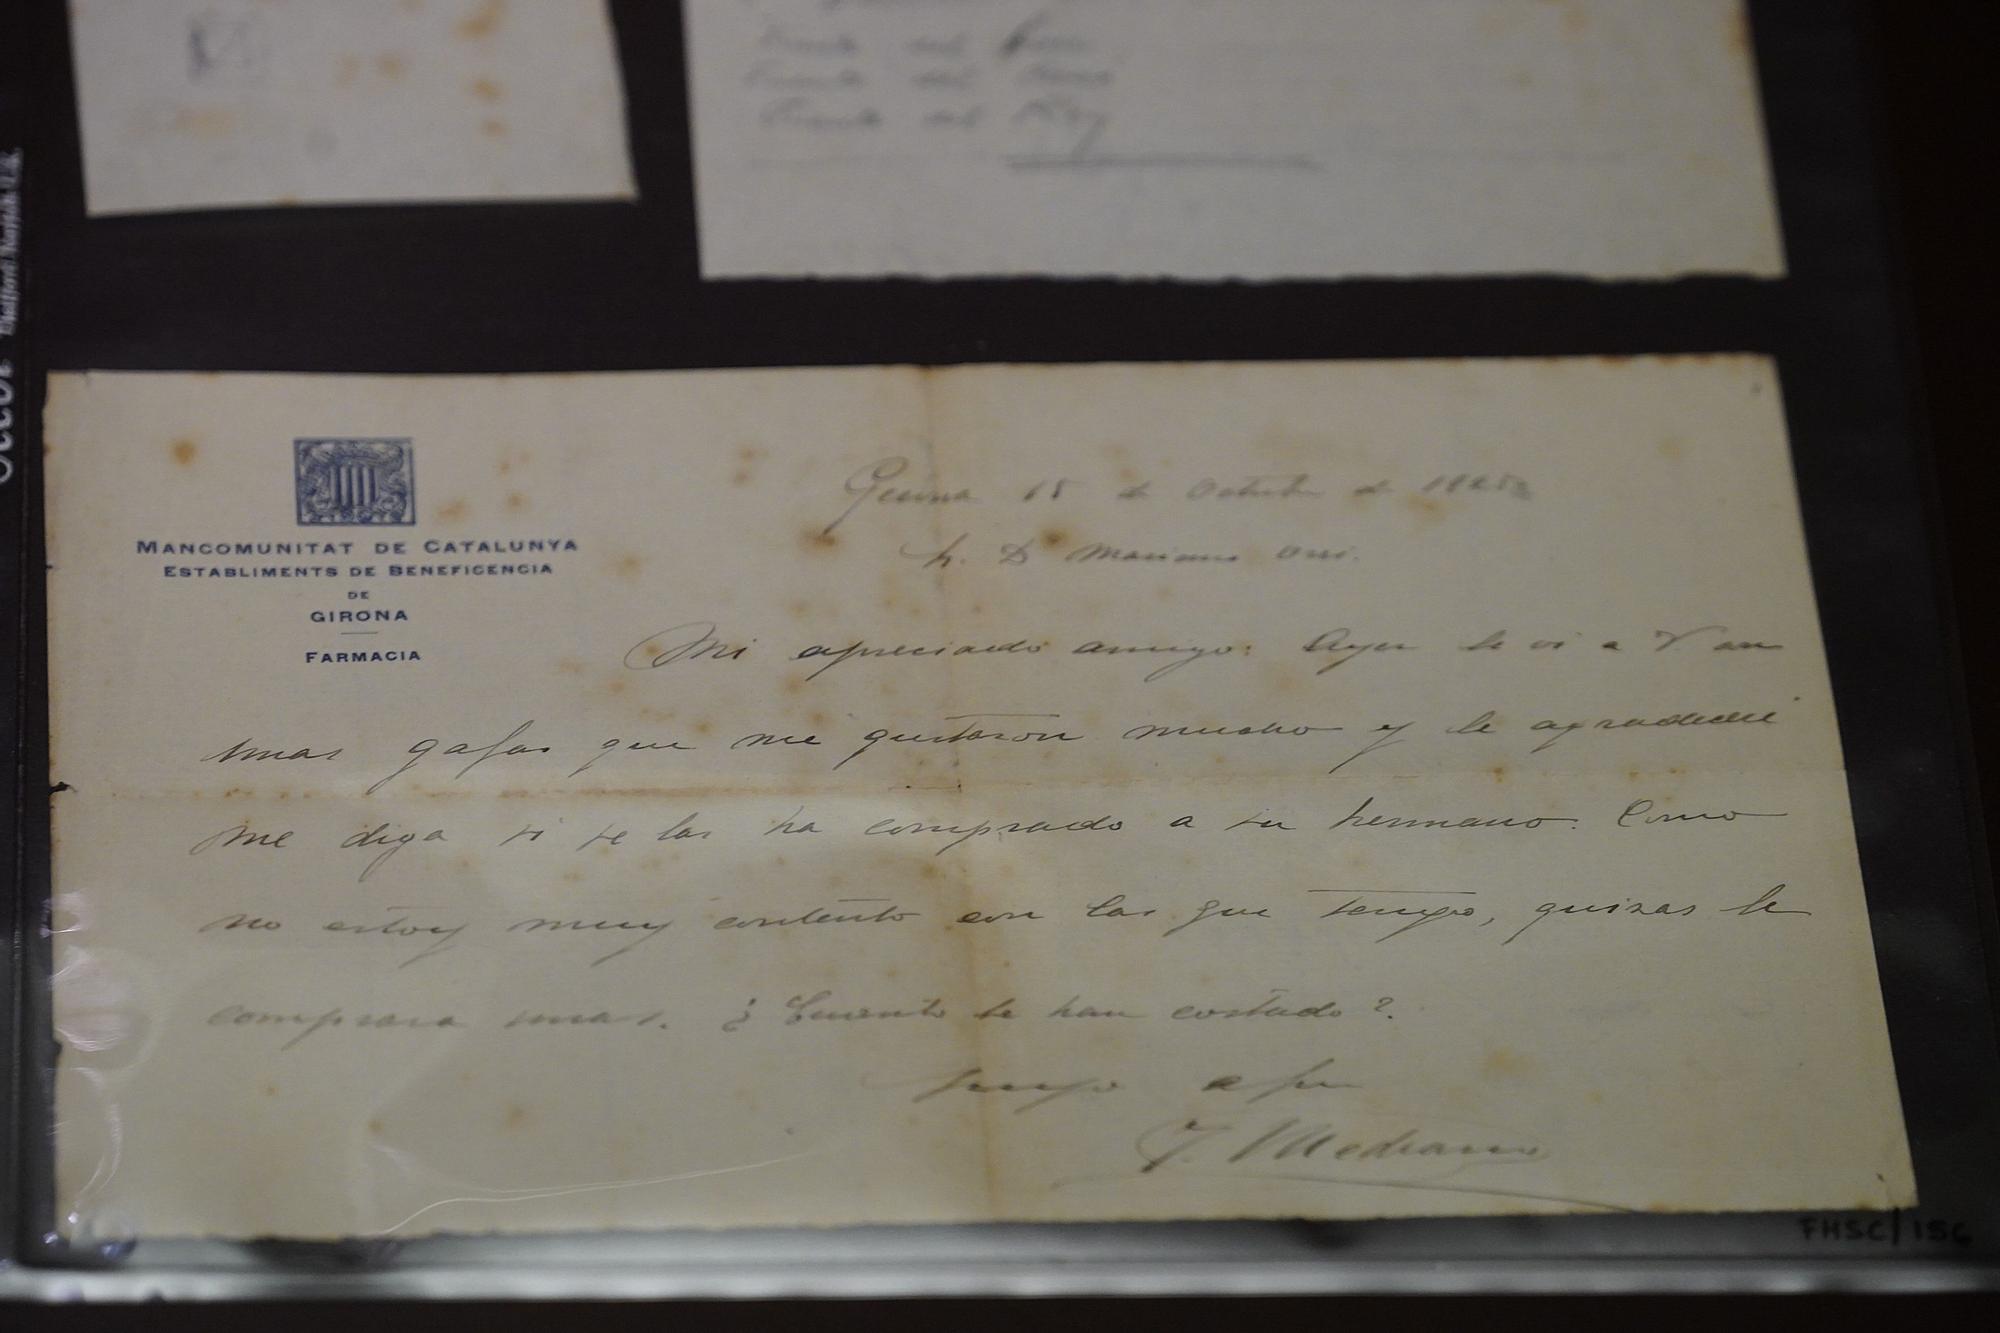 del
del
del Rey
MANCOMUNITAT DE CATALUNYA
ESTABLIMENTS DE BENEFICENCIA
DE
GIRONA
FARMACIA
Gerona 15 de Octubre de
D Mariano
Mi apreciado amigo: Ayer le vi a V con
unas gafas que me gustaron mucho y le agradeceré
me diga si se las ha comprado a su hermano. Como
no estoy muy contento con las que tengo, quizas le
comprara unas. ¿Cuanto le han costado?
J. Medrano
FHSC/156